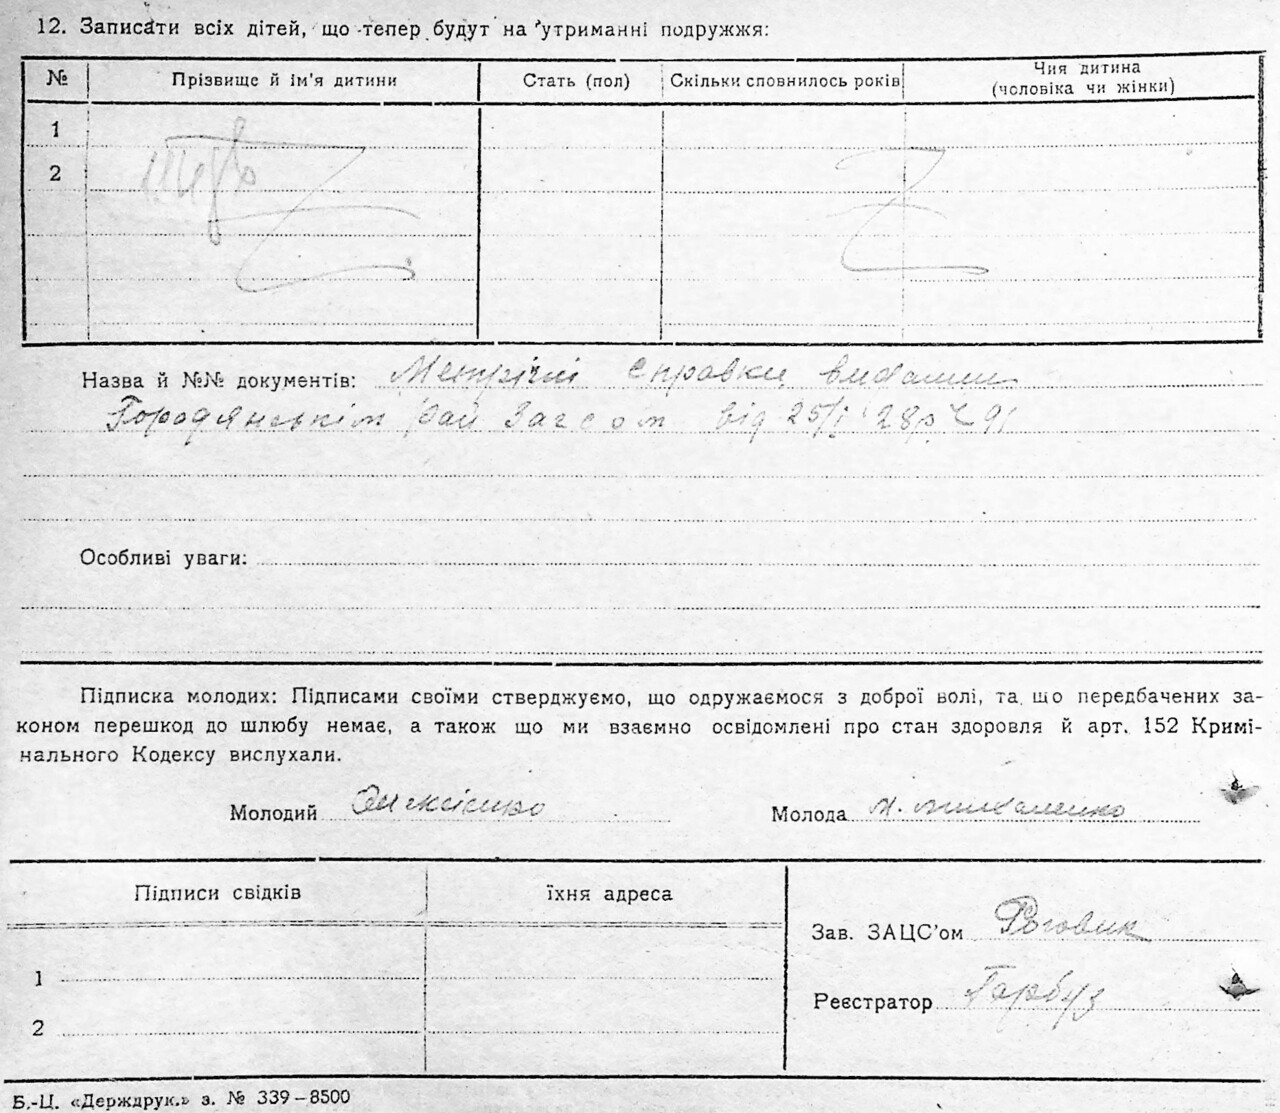 12. Записати всіх дітей, що тепер будут на утриманні подружжя:
№ Прізвище й ім'я дитини Стать (пол) Скільки сповнилось років Чия дитина (чоловіка чи жінки)
1
2
Назва й №№ документів: Метрічні справки видани
Городянськім рай Загсом від 25/I 28р. № 91
Особливі уваги:
Підписка молодих: Підписами своїми стверджуємо, що одружаємося з доброї волі, та що передбачених за-
коном перешкод до шлюбу немає, а також що ми взаємно освідомлені про стан здоровля й арт. 152 Кримі-
нального Кодексу вислухали.
Молодий Молода
Підписи свідків їхня адреса
Зав. ЗАЦС'ом Роговик
1
Реєстратор Гарбуз
2
Б.-Ц. «Держдрук.» з. № 339–8500